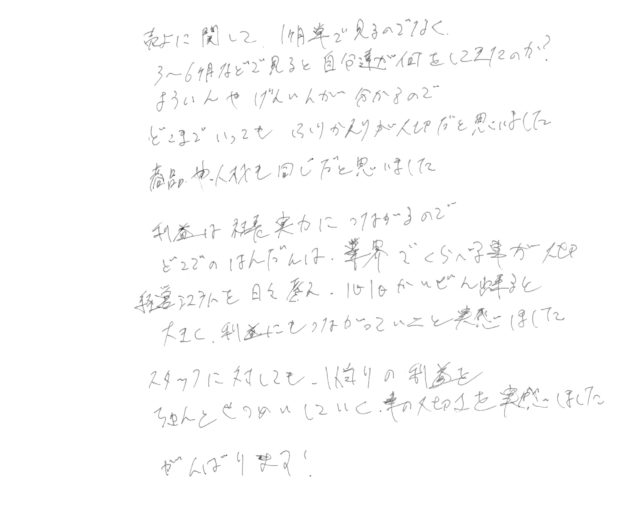 売上に関して、1ヶ月単で見るのでなく、
3〜6ヶ月などで見ると自分達が何をしてきたのか?
よういんやげんいんが分かるので
どこまでいってもふりかえりが大切だと思いました
商品や、人材も同じだと思いました
利益は社長実力につながるので
どこでのはんだんは、業界でくらべる事が大切
経営システムを日々導入、1つ1つかいぜん出来ると
大きく、利益にもつながっていくと実感しました
スタッフに対しても、1人当りの利益を
ちゃんとせつめいしていく、事の大切さを実感しました
がんばります!